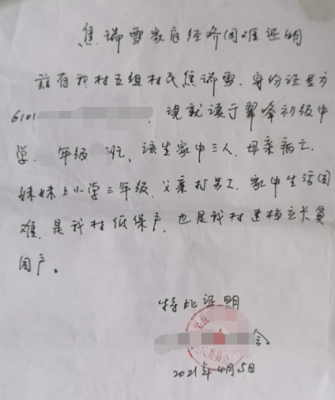 焦瑞雪家庭经济困难证明
兹有我村五组村民焦瑞雪，身份证号为
6101 现就读于翠峰初级中
学， 年级 班，该生家中三人，母亲病亡，
妹妹上小学三年级，父亲打工，家中生活困
难，是我村低保户，也是我村建档立卡贫
困户。
特此证明
会
2021年4月5日